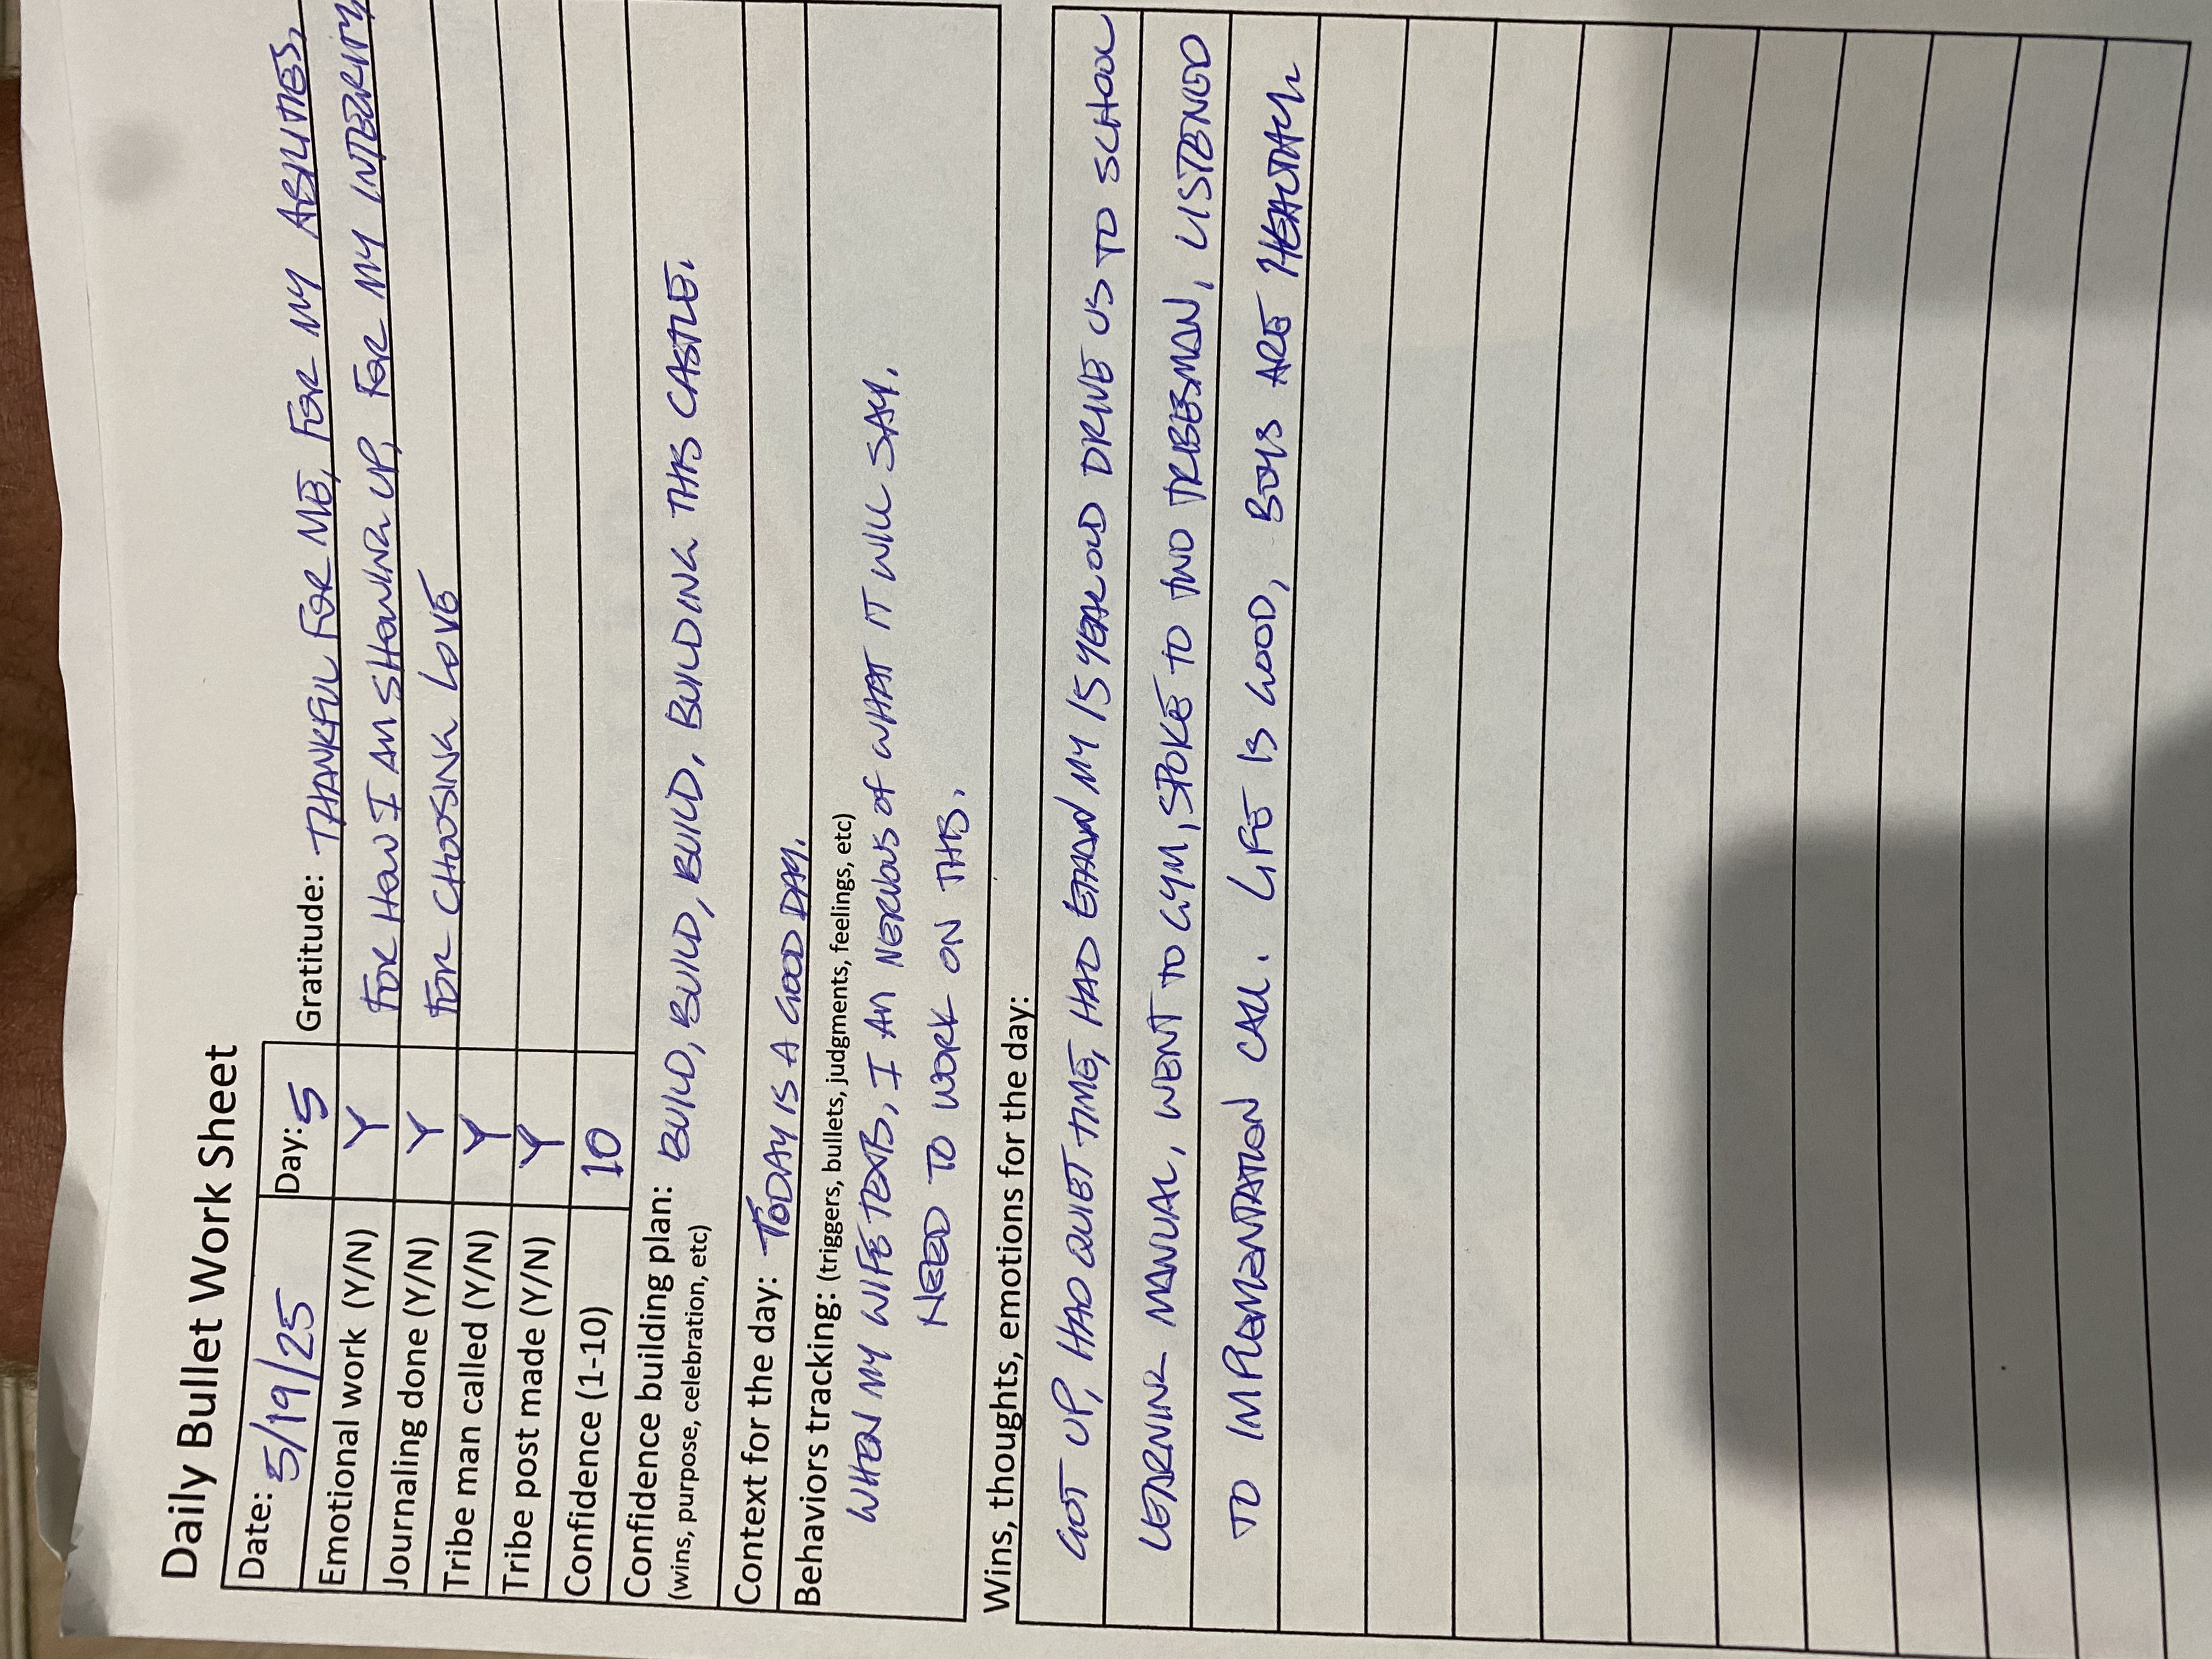 Daily Bullet Work Sheet
Date: 5/19/25 Day: 5 Gratitude: THANKFUL FOR ME, FOR MY ABILITIES,
Emotional work (Y/N) Y FOR HOW I AM SHOWING UP, FOR MY INTEGRITY
Journaling done (Y/N) Y FOR CHOOSING LOVE
Tribe man called (Y/N) Y
Tribe post made (Y/N) Y
Confidence (1-10) 10
Confidence building plan: BUILD, BUILD, BUILD, BUILD, BUILDING THIS CASTLE.
(wins, purpose, celebration, etc)
Context for the day: TODAY IS A GOOD DAY.
Behaviors tracking: (triggers, bullets, judgments, feelings, etc)
WHEN MY WIFE TEXTS, I AM NERVOUS OF WHAT IT WILL SAY.
NEED TO WORK ON THIS.
Wins, thoughts, emotions for the day:
GOT UP, HAD QUIET TIME, HAD ETHAN MY 15 YEAR OLD DRIVE US TO SCHOOL
LEARNING MANUAL, WENT TO GYM, SPOKE TO TWO TRIBESMAN, LISTENED
TO IMPLEMENTATION CALL. LIFE IS GOOD, BOYS ARE HEALTHY